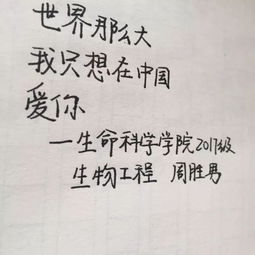 世界那么大
我只想在中国
爱你
一生命科学学院2017级
生物工程 周胜男